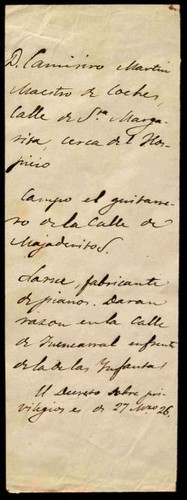 D. Camisiro Martin
Maestro de Coches,
Calle de Sta Marga-
rita, cerca del Hos-
picio
Campo el guitarre-
ro de la Calle de
Majaderitos.
Larrue, fabricante
de pianos. Daran
razon en la Calle
de Fuencarral enfrente
de la de las Infantas
El Decreto sobre pri-
vilegios es de 27 Mzo 26.